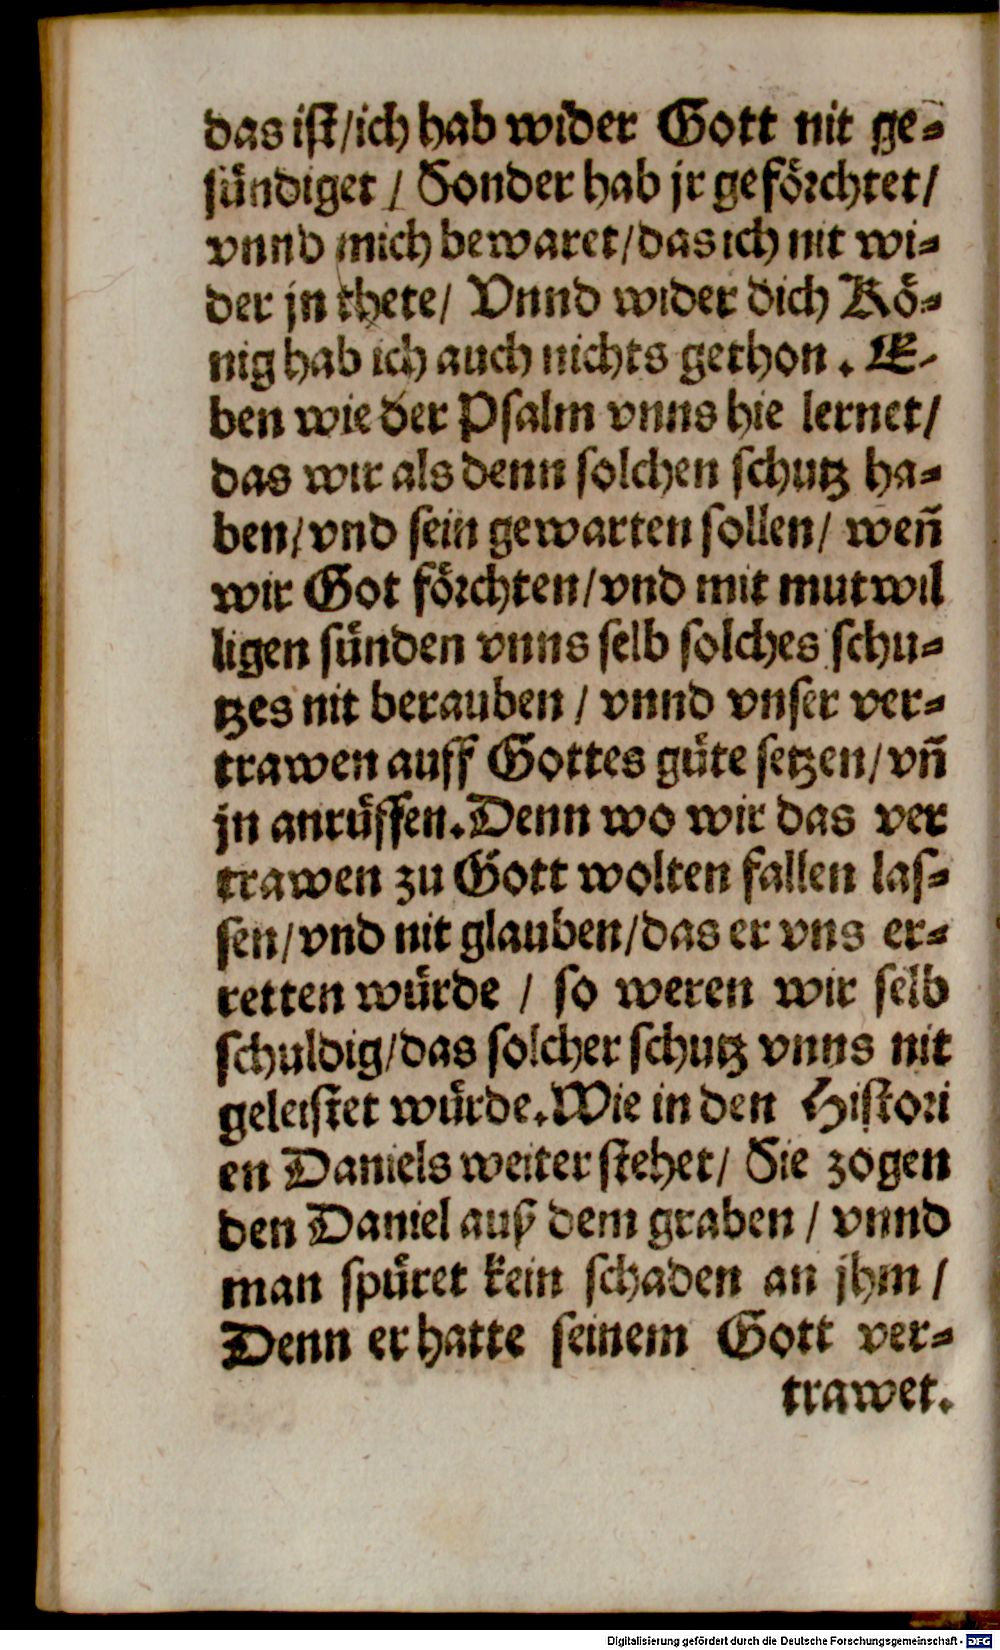 das ist/ich hab wider Gott nit ge-
sündiget / Sonder hab jr geförchtet/
vnnd mich bewaret/das ich nit wi-
der jn thete/ Vnnd wider dich Kö-
nig hab ich auch nichts gethon. E-
ben wie der Psalm vnns hie lernet/
das wir als denn solchen schutz ha-
ben/vnd sein gewarten sollen/ weñ
wir Got förchten/vnd mit mutwil
ligen sünden vnns selb solches schu-
tzes nit berauben / vnnd vnser ver-
trawen auff Gottes güte setzen/vñ
jn anrüffen. Denn wo wir das ver
trawen zu Gott wolten fallen las-
sen/vnd nit glauben/das er vns er-
retten würde / so weren wir selb
schuldig/das solcher schutz vnns nit
geleistet würde. Wie in den Histori
en Daniels weiter stehet/ Sie zogen
den Daniel auß dem graben / vnnd
man spüret kein schaden an jhm /
Denn er hatte seinem Gott ver-
trawet.
Digitalisierung gefördert durch die Deutsche Forschungsgemeinschaft - DFG